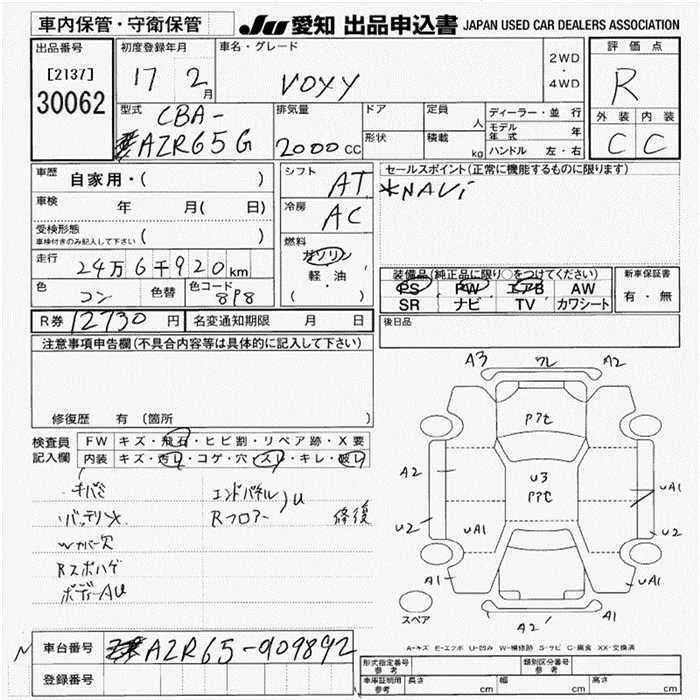 車内保管・守衛保管
JU 愛知 出品申込書 JAPAN USED CAR DEALERS ASSOCIATION
出品番号
[2137]
30062
初度登録年月
17 2 月
車名・グレード
VOXY
2WD
・
4WD
評価点
R
外装 内装
C C
型式
CBA-
AZR65G
排気量
2000 CC
ドア
形状
定員 人
積載 kg
ディーラー・並行
モデル年式 年
ハンドル 左・右
車歴 自家用・( )
車検 年 月( 日)
受検形態
車検付きのみ記入して下さい ( )
走行
24万6千920km
色 コン 色替 色コード 8P8
シフト AT
冷房 AC
燃料
ガソリン
軽・油
( )
セールスポイント(正常に機能するものに限ります)
*NAVi
装備品(純正品に限り○をつけてください)
PS PW エアB AW
SR ナビ TV カワシート
新車保証書
有・無
R券 12730円 名変通知期限 月 日
後日品
注意事項申告欄(不具合内容等は具体的に記入して下さい)
修復歴 有(箇所 )
検査員記入欄
FW キズ・飛石・ヒビ割・リペア跡・X要
内装 キズ・汚レ・コゲ・穴・スレ・キレ・破レ
キバミ
バッテリ×
Wカバー欠
Rスポハゲ
ボディーAU
エンドパネル
Rフロアー
U
修後
A3 ワレ A2
Pアセ
A2
U3
Pアセ
UA1
U2
UA1
U2
A1
UA1
A2
A1
スペア
A-キズ E-エクボ U-凹み W-補修跡 S-サビ C-腐食 XX-交換済
N
車台番号 AZR65-0109892
登録番号
形式指定番号
参考
類別区分番号
参考
車庫証明用
参考
長さ cm 幅 cm 高さ cm